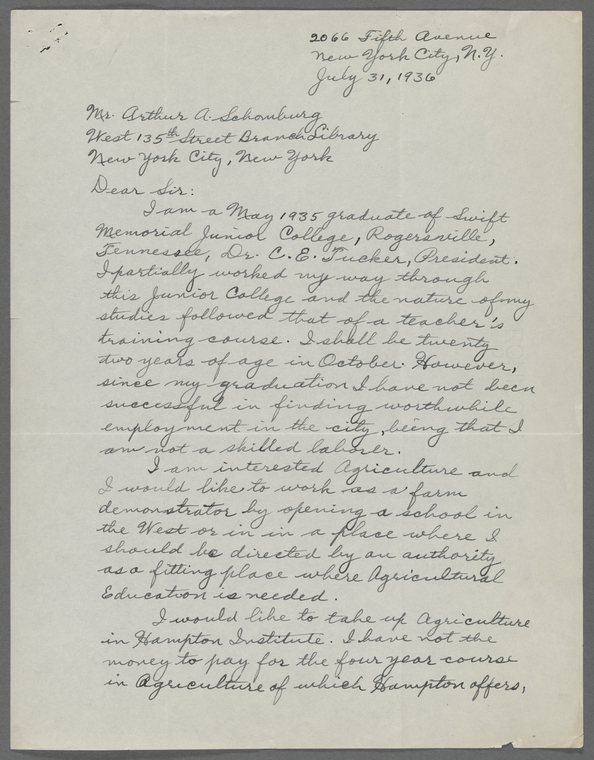 2066 Fifth Avenue
New York City, N.Y.
July 31, 1936
Mr. Arthur A. Schomburg
West 135th Street Branch Library
New York City, New York
Dear Sir:
I am a May 1935 graduate of Swift
Memorial Junior College, Rogersville,
Tennessee, Dr. C. E. Tucker, President.
I partially worked my way through
this Junior College and the nature of my
studies followed that of a teacher's
training course. I shall be twenty
two years of age in October. However,
since my graduation I have not been
successful in finding worthwhile
employment in the city, being that I
am not a skilled laborer.
I am interested Agriculture and
I would like to work as a farm
demonstrator by opening a school in
the West or in in a place where I
should be directed by an authority
as a fitting place where Agricultural
Education is needed.
I would like to take up Agriculture
in Hampton Institute. I have not the
money to pay for the four year course
in Agriculture of which Hampton offers,